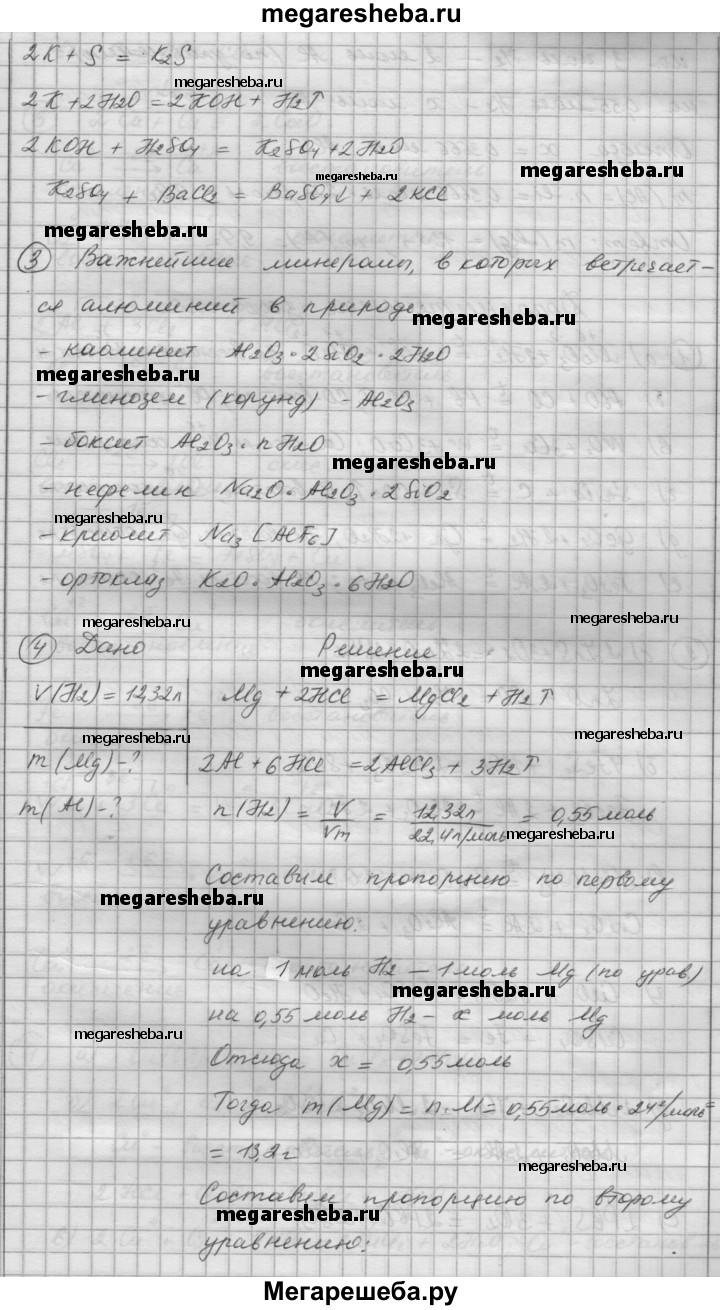 megaresheba.ru
2K + S = K2S
megaresheba.ru
2K + 2H2O = 2KOH + H2↑
2KOH + H2SO4 = K2SO4 + 2H2O
megaresheba.ru
megaresheba.ru
K2SO4 + BaCl2 = BaSO4↓ + 2KCl
megaresheba.ru
3 Важнейшие минералы, в которых встречает-
ся алюминий в природе
megaresheba.ru
- каолинит Al2O3 · 2SiO2 · 2H2O
megaresheba.ru
- глинозем (корунд) - Al2O3
- боксит Al2O3 · nH2O
megaresheba.ru
- нефелин Na2O · Al2O3 · 2SiO2
megaresheba.ru
- криолит Na3[AlF6]
- ортоклаз K2O · Al2O3 · 6H2O
megaresheba.ru
megaresheba.ru
4 Дано Решение
megaresheba.ru
V(H2) = 12,32л Mg + 2HCl = MgCl2 + H2↑
megaresheba.ru
megaresheba.ru
m(Mg) - ? 2Al + 6HCl = 2AlCl3 + 3H2↑
m(Al) - ? n(H2) = V/Vm = 12,32л/22,4л/моль = 0,55моль
megaresheba.ru
Составим пропорцию по первому
megaresheba.ru
уравнению:
на 1 моль H2 — 1 моль Mg (по урав)
megaresheba.ru
на 0,55 моль H2 - x моль Mg
megaresheba.ru
Отсюда x = 0,55 моль
Тогда m(Mg) = n·M = 0,55моль · 24г/моль =
= 13,2г
megaresheba.ru
Составим пропорцию по второму
megaresheba.ru
уравнению:
Мегарешеба.ру